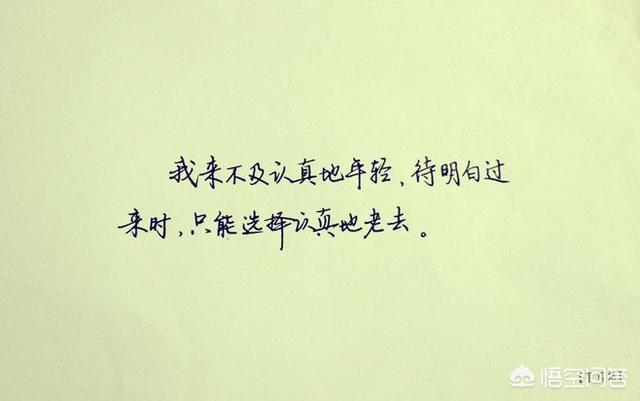 我来不及认真地年轻，待明白过
来时，只能选择认真地老去。
悟空问答